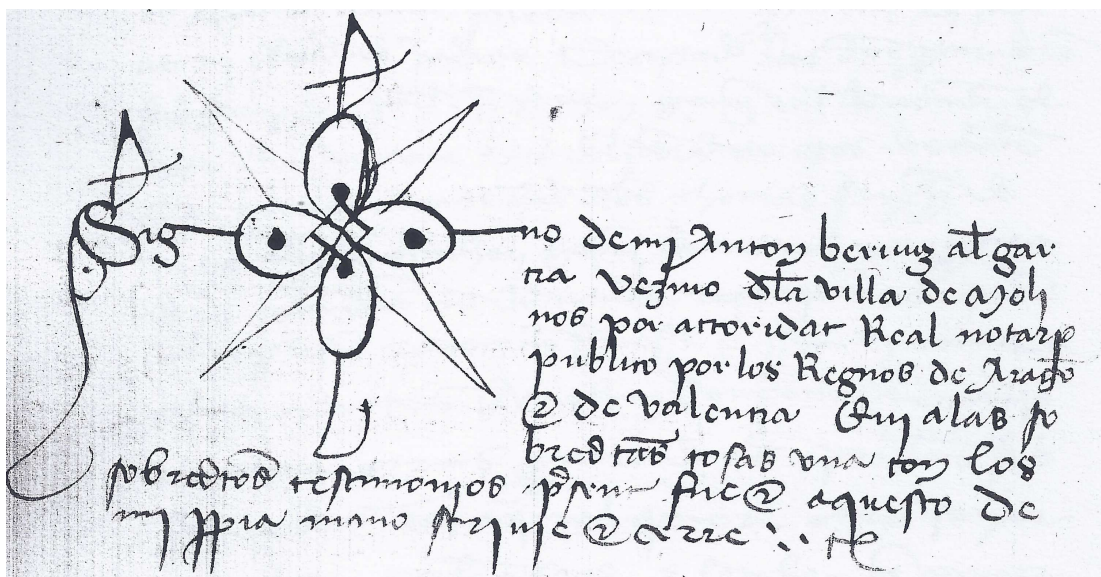 Sig no de mi Anton beruiz al gar
cia vezino dla villa de Moli
nos por actoridat Real notarº
publico por los Regnos de Arago
& de valencia Qui alas so
bredtas cosas vna con los
sobredtos testimonios psent fue & aquesto de
mi ppia mano scriuie & çarre